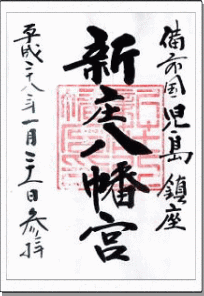 備前国児島鎮座
新庄八幡宮
平成二十八年一月三十一日参拝